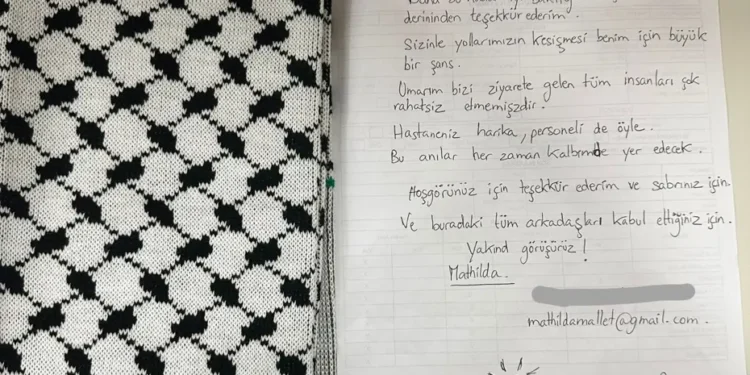 derininden teşekkür ederim.
Sizinle yollarımızın kesişmesi benim için büyük
bir şans.
Umarım bizi ziyarete gelen tüm insanları çok
rahatsız etmemişzdir.
Hastaneniz harika, personeli de öyle.
Bu anılar her zaman kalbimde yer edecek.
Hoşgörünüz için teşekkür ederim ve sabrınız için.
Ve buradaki tüm arkadaşları kabul ettiğiniz için.
Yakınd görüşürüz!
Mathilda.
mathildamallet@gmail.com.